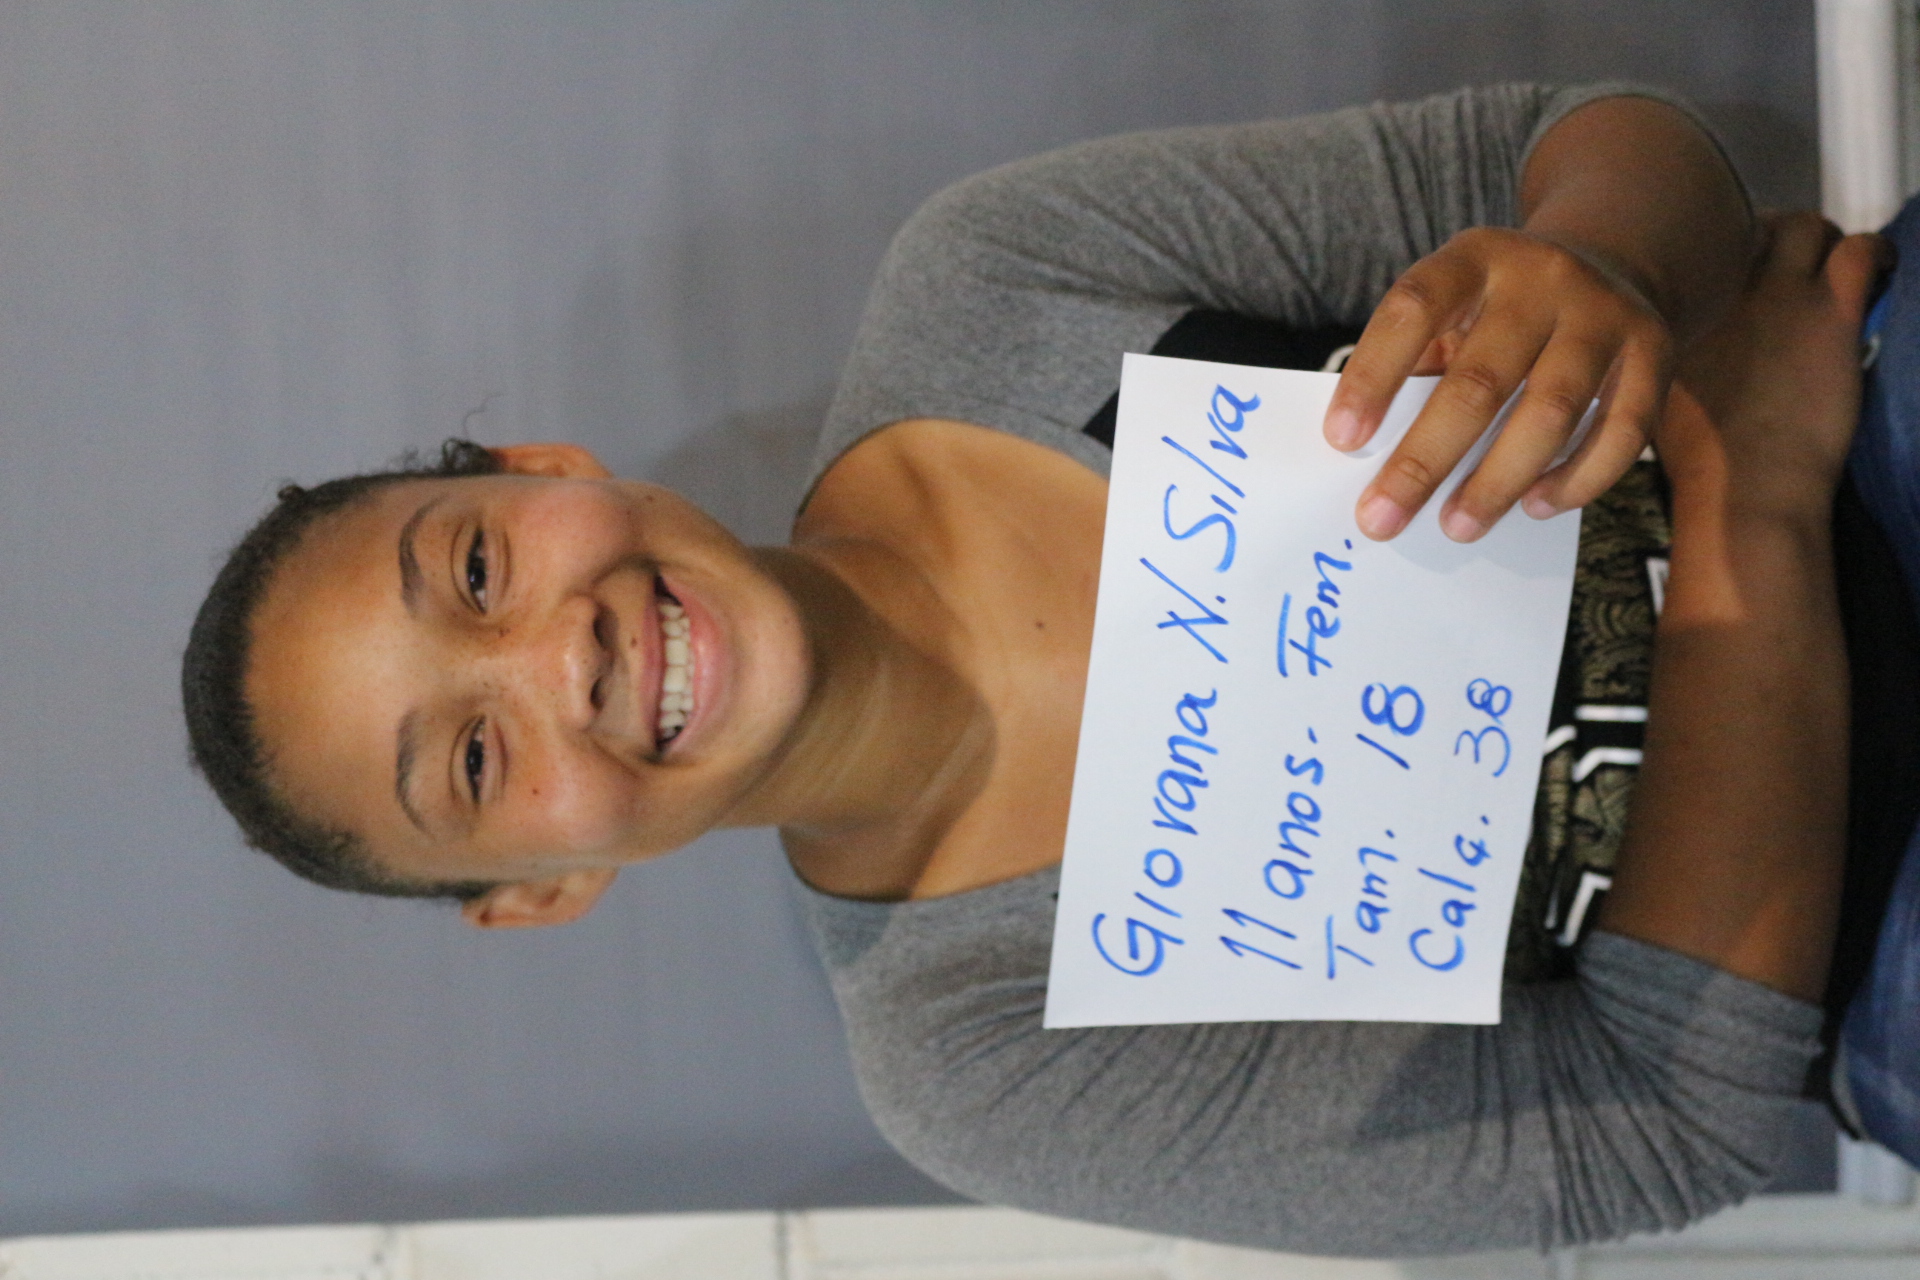 Giovana N. Silva
11 anos. Fem.
Tam. 18
Calç. 38